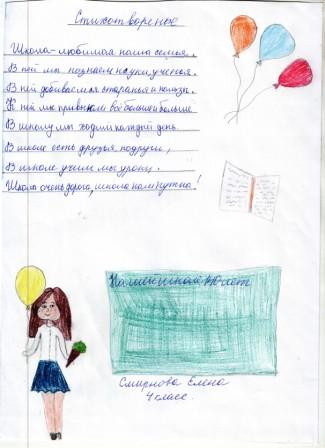 Стихотворение
Школа-любимая наша семья.
В ней мы познаем науки, ученья.
В ней добиваемся стараньем
К ней мы привыкли всё больше и больше
В школу мы ходим каждый день.
В школе есть друзья, подруги,
В школе учим мы уроки.
Школа очень дорога, школа нам нужна!
Нашей школе 40 лет
Смирнова Елена
4 класс.